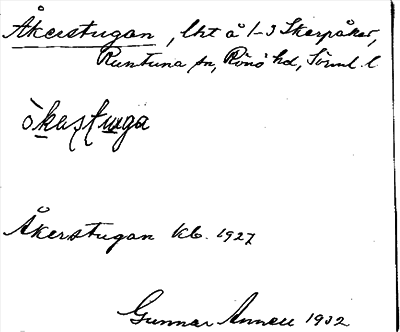 Åkerstugan, lht å 1-3 Skerpåker,
Runtuna sn, Rönö hd, Söml. l
òkastu̲ga
Åkerstugan kb. 1927
Gunnar Annell 1932